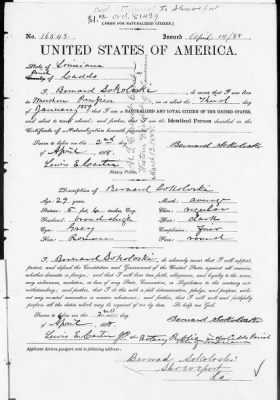 [FORM FOR NATURALIZED CITIZEN.]
No. 16843 Issued April 14/88
UNITED STATES OF AMERICA.
State of Louisiana
Parish of Caddo
I Bernard Sokoloski, do swear that I was born
in Prussia on or about the Third day
of January 1859; that I am a NATURALIZED AND LOYAL CITIZEN OF THE UNITED STATES,
and about to travel abroad; and further, that I am the Identical Person described in the
Certificate of Naturalization herewith presented.
Sworn to before me this 2nd day
of April 188
Bernard Sokoloski
Lewis E. Carter
Notary Public.
Description of Bernard Sokoloski
Age: 29 years Mouth: average
Stature: 5 feet 6 inches, Eng. Chin: regular
Forehead: Hair: dark
Eyes: Grey Complexion: fair
Nose: Roman Face: round
I, Bernard Sokoloski, do solemnly swear that I will support,
protect, and defend the Constitution and Government of the United States against all enemies,
whether domestic or foreign; and that I will bear true faith, allegiance, and loyalty to the same,
any ordinance, resolution, or law of any State, Convention, or Legislature to the contrary not-
withstanding; and further, that I do this with a full determination, pledge, and purpose, with-
out any mental reservation or evasion whatsoever; and further, that I will well and faithfully
perform all the duties which may be required of me by law. So help me God.
Sworn to before me this 2nd day
of April 188
Bernard Sokoloski
Lewis E. Carter & Notary Public
Applicant desires passport sent to following address:
Bernard Sokoloski
Shreveport
La